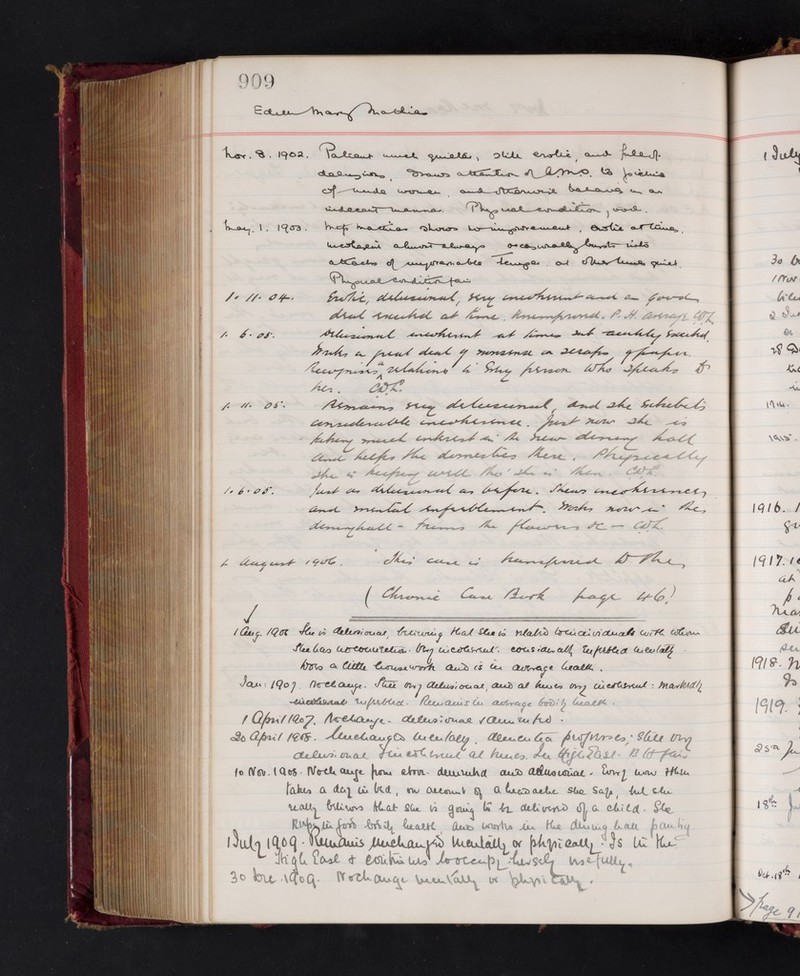 909
Edith Mary Mathias
Nov. 3. 1902. Patient much quieter, still erotic, and full of
delusions. Draws attention of A.M.O. to pictures
of nude women, and otherwise behaves in an
indecent manner. Physical condition, good.
May. 1. 1903. Miss Mathias shows no improvement, erotic at times,
incoherent almost always occasionally bursts into
attacks of ungovernable temper, at other times quiet.
Physical condition fair
1. 11. 04. Erotic, delusional, very incoherent and a good
deal excited at time, unimproved. P. H. average
1. 6. 05. Delusional incoherent at times but acutely excited.
Writes a great deal of nonsense on scraps of paper.
Recognises relations in every person who speaks to
her.
1. 11. 05. Remains very delusional, and she exhibits
considerable incoherence. Just now she is
taking much interest in the new dining hall
and helps the domestics there. Physically
she is keeping well tho' she is thin
1. 6. 05. Just as delusional as before. Shews incoherency
and mental enfeeblement. Works now in the
dininghall - trims the flowers &c -
1 August 1906. This case is transferred to the
(Chronic Case Book page 46)
1 Aug. 1906 She is delusional, believing that she is related to individuals with whom
she has no connection. Very incoherent. considerably enfeebled mentally
Does a little housework and is in average health.
Jan: 1907. No change. Still very delusional, and at times very incoherent: markedly
incoherent enfeebled. Remains in average bodily health.
1 April 1907. No change. delusional & demented.
20 April 1908. Unchanged mentally, dementia progresses; still very
delusional & incoherent at times. In High East. B H fair
10 Nov. 1908. No change from above. demented and delusional. Every now & then
takes a day in bed, on account of a headache she says, but she
really believes that she is going to be delivered of a child. She
keeps in good bodily health and works in the dining hall pantry
1 July 1909. Remains unchanged mentally or physically. Is in the
High East & continues to occupy herself usefully.
30 Dec. 1909. No change mentally or physically.
1 July
30
1 Nov
1914.
1915.
1916.
1917.
1918.
1919.
25th
18th
Oct. 18th
page 91